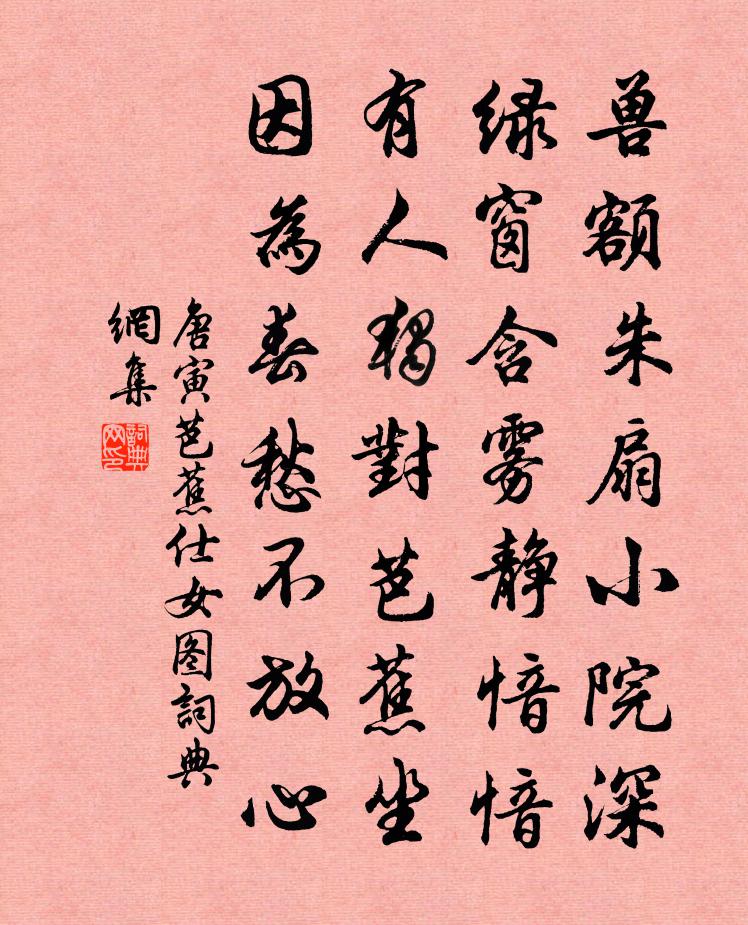 兽额朱扇小院深
绿窗含雾静愔愔
有人独對芭蕉坐
因為春愁不放心
唐寅芭蕉仕女图詞典
網集
詞典
网印